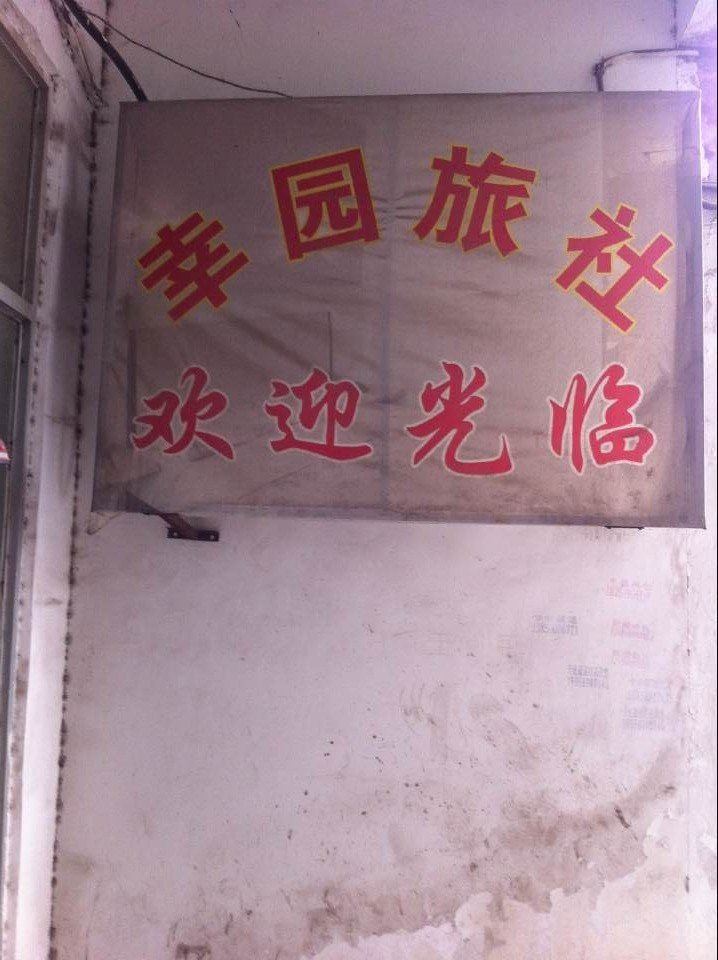 幸园旅社
欢迎光临